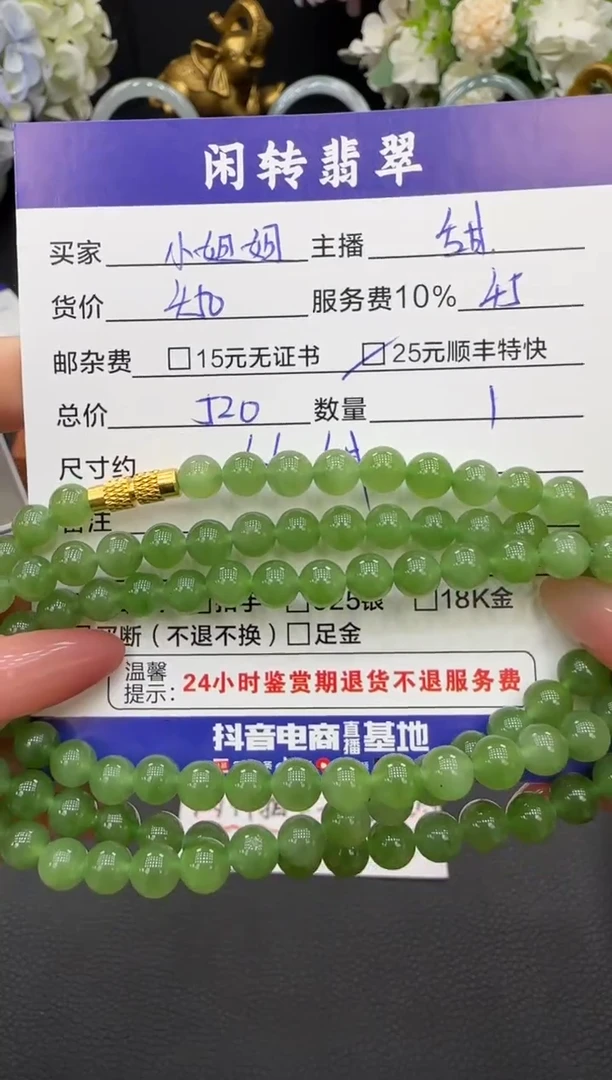 闲转翡翠
买家 小姐姐 主播 甜
货价 450 服务费10% 45
邮杂费 □15元无证书 □25元顺丰特快
总价 520 数量 1
尺寸约
备注
□18K金
断（不退不换）□足金
温馨提示：24小时鉴赏期退货不退服务费
抖音电商直播基地